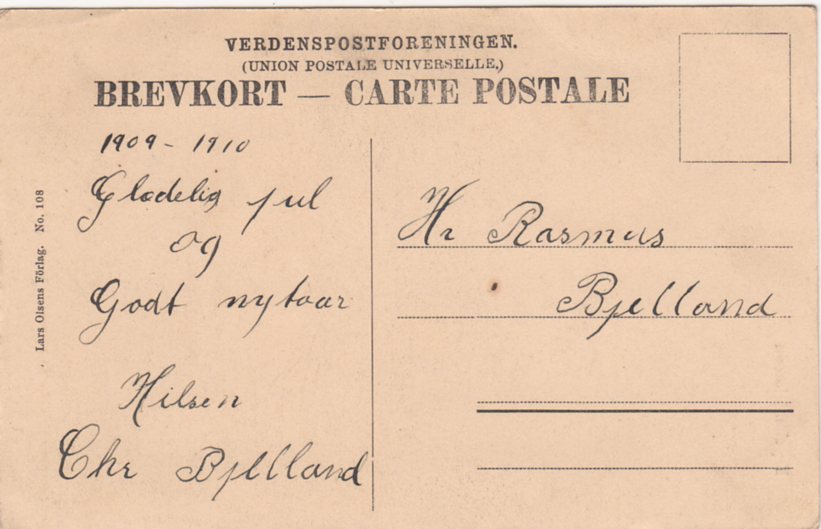 VERDENSPOSTFORENINGEN.
(UNION POSTALE UNIVERSELLE.)
BREVKORT — CARTE POSTALE
1909 - 1910
Glædelig jul
og
Godt nytaar
Hilsen
Chr Bjelland
Hr Rasmus
Bjelland
Lars Olsens Förlag. No. 108